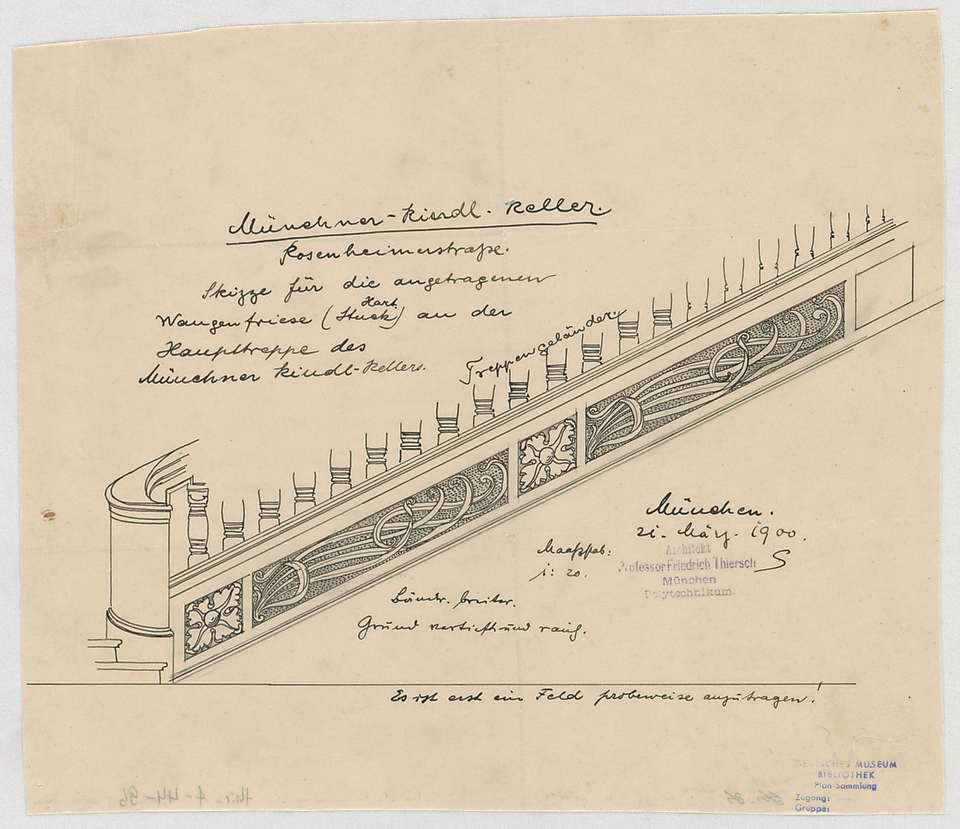 Münchner-Kindl-Keller.
Rosenheimerstraße.
Skizze für die angetragenen
Wangenfriese (Hart Stuck) an der
Haupttreppe des
Münchner Kindl-Kellers.
Treppengeländer
München.
21. März. 1900.
S
Architekt
Professor Friedrich Thiersch
München
Polytechnikum.
Maaßstab:
1:20.
Bänder breiter.
Grund vertieft und rauh.
Es ist erst ein Feld probeweise anzutragen!
DEUTSCHES MUSEUM
BIBLIOTHEK
Plan-Sammlung
Zugang:
Gruppe: